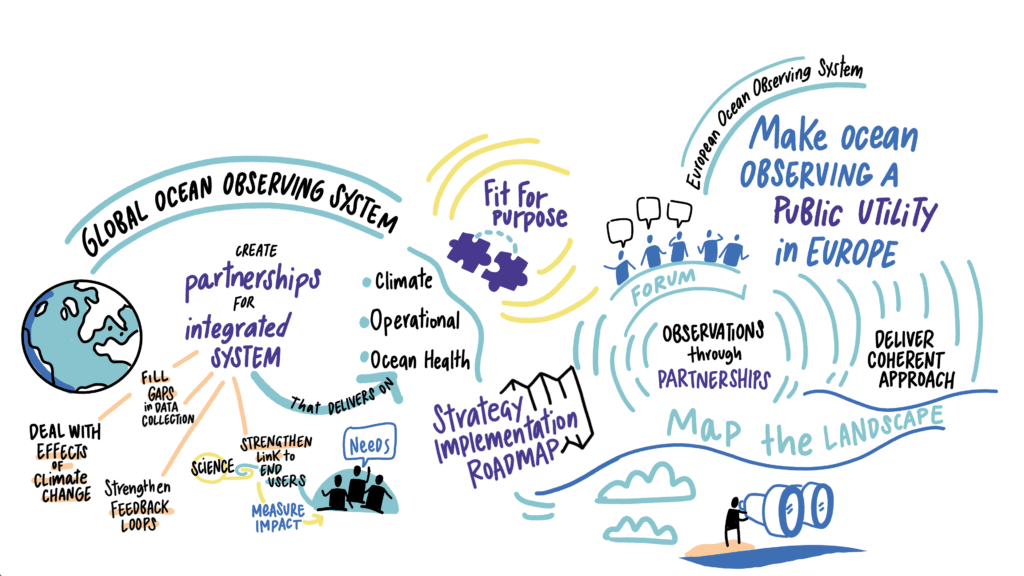 GLOBAL OCEAN OBSERVING SYSTEM
CREATE
partnerships
FOR
integrated
SYSTEM
That DELIVERS ON
Climate
Operational
Ocean Health
FILL
GAPS
in DATA
COLLECTION
DEAL WITH
EFFECTS
OF
Climate
CHANGE
Strengthen
FEEDBACK
LOOPS
SCIENCE
STRENGTHEN
LINK to
END
USERS
MEASURE
IMPACT
NEEDS
Fit For
PURPOSE
Strategy
Implementation
ROADMAP
European Ocean Observing System
Make ocean
OBSERVING A
PUBLIC UTILITY
in EUROPE
FORUM
OBSERVATIONS
through
PARTNERSHIPS
DELIVER
COHERENT
APPROACH
Map the LANDSCAPE